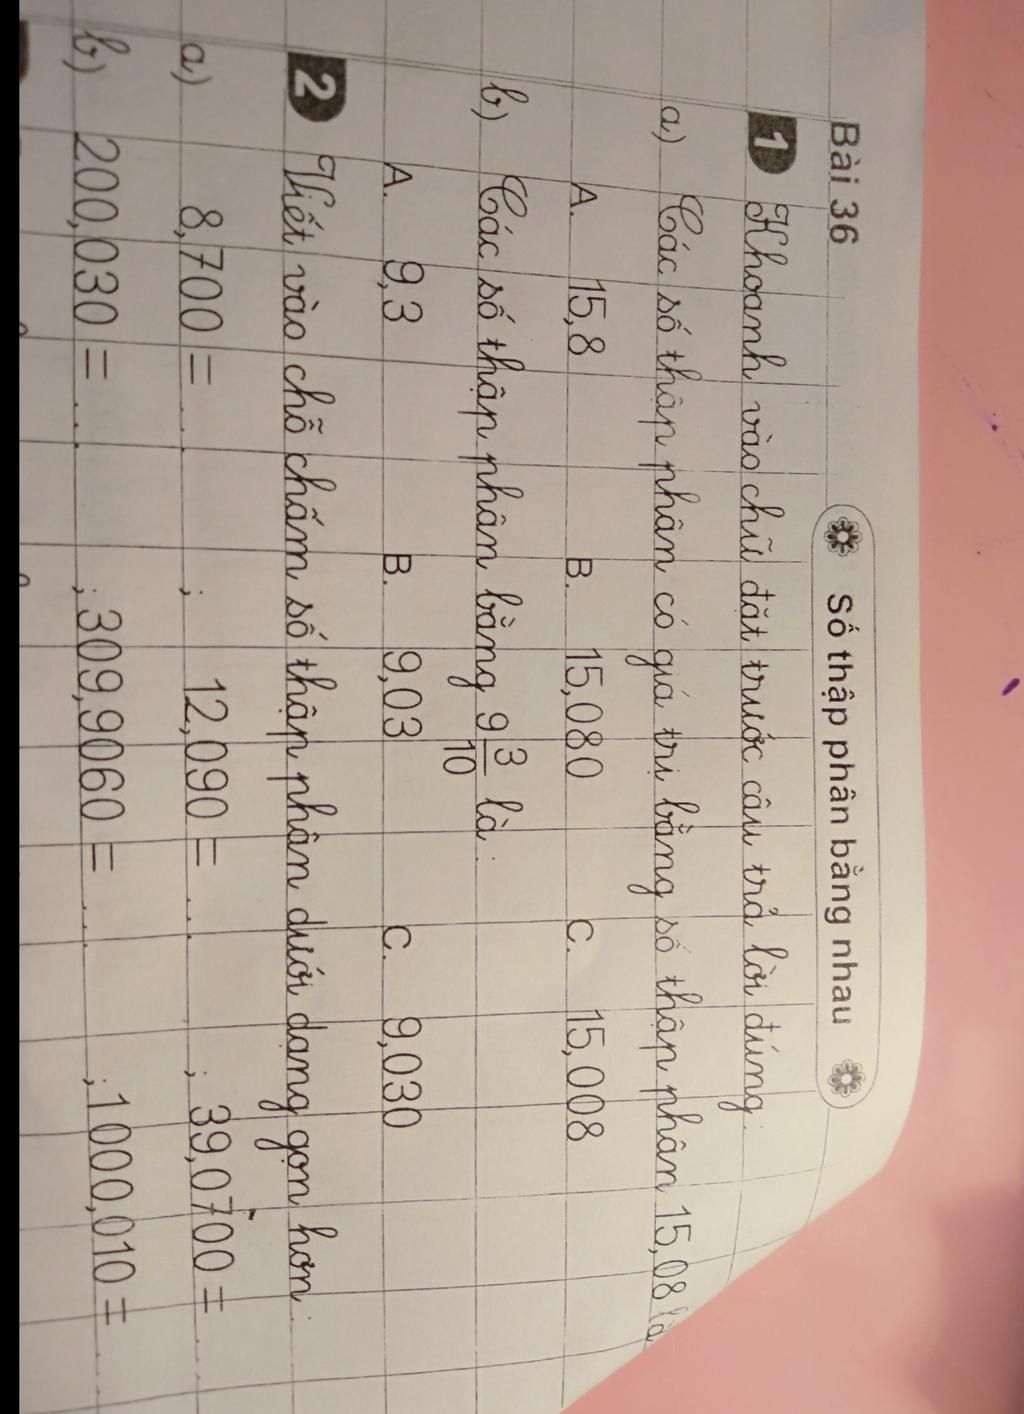 Bài 36
Số thập phân bằng nhau
1 Khoanh vào chữ đặt trước câu trả lời đúng.
a) Các số thập phân có giá trị bằng số thập phân 15,08 là
A. 15,8 B. 15,080 C. 15,008
b) Các số thập phân bằng 9 3/10 là:
A. 9,3 B. 9,03 C. 9,030
2 Viết vào chỗ chấm số thập phân dưới dạng gọn hơn:
a) 8,700 = ... ; 12,090 = ... ; 39,0700 = ...
b) 200,030 = ... ; 309,9060 = ... ; 1000,010 = ...